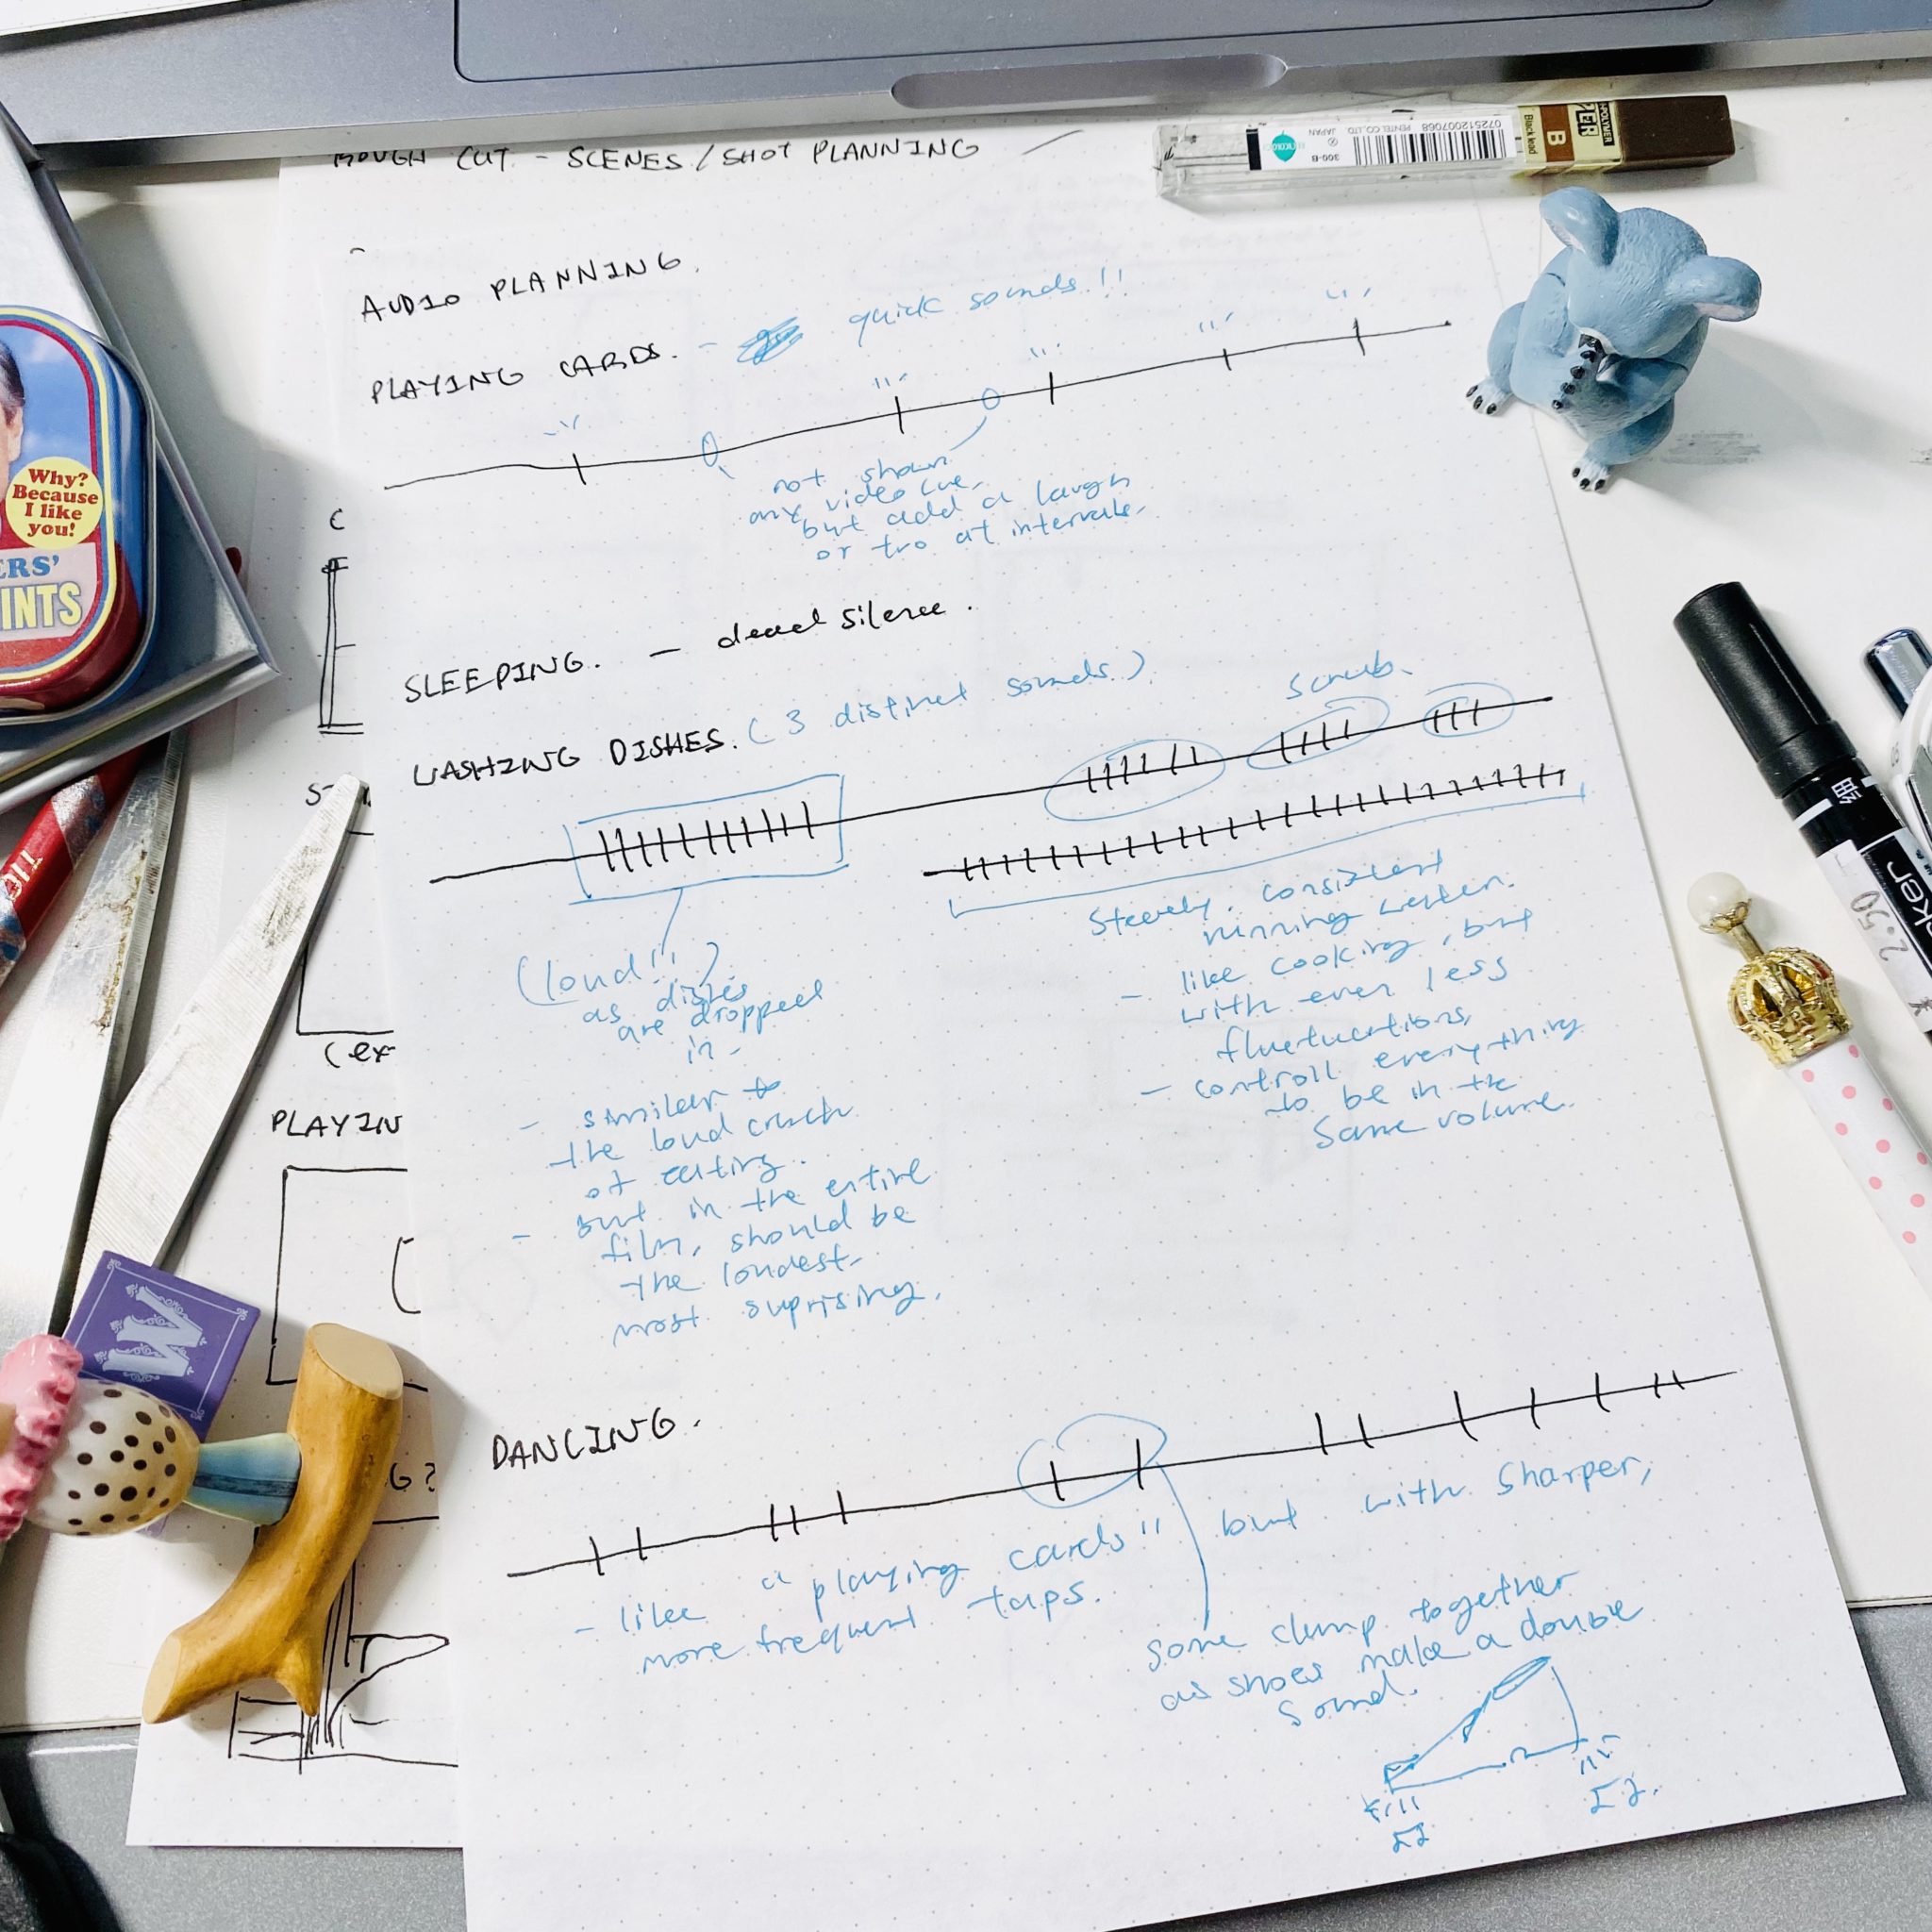 ROUGH CUT - SCENES / SHOT PLANNING
AUDIO PLANNING.
PLAYING CARDS. - quick sounds!!
not shown
any video cue,
but add a laugh
or two at intervals.
SLEEPING. - dead silence.
WASHING DISHES. (3 distinct sounds.)
scrub.
(loud!!)
as dishes
are dropped
in-
- similar to
the loud crunch
of eating.
- but in the entire
film, should be
the loudest,
most suprising.
Steady, consistent
running water.
- like cooking, but
with even less
fluctuations,
- controll everything
to be in the
same volume.
DANCING.
- like "playing cards" but with sharper,
more frequent taps.
some clump together
as shoes make a double
sound.
C
(ex
PLAYIN
G?
Why?
Because
I like
you!
ERS'
INTS
W
PENTEL CO., LTD.
JAPAN
300-B
072512007068
Black lead
B
POLYMER
細
ker
2.50